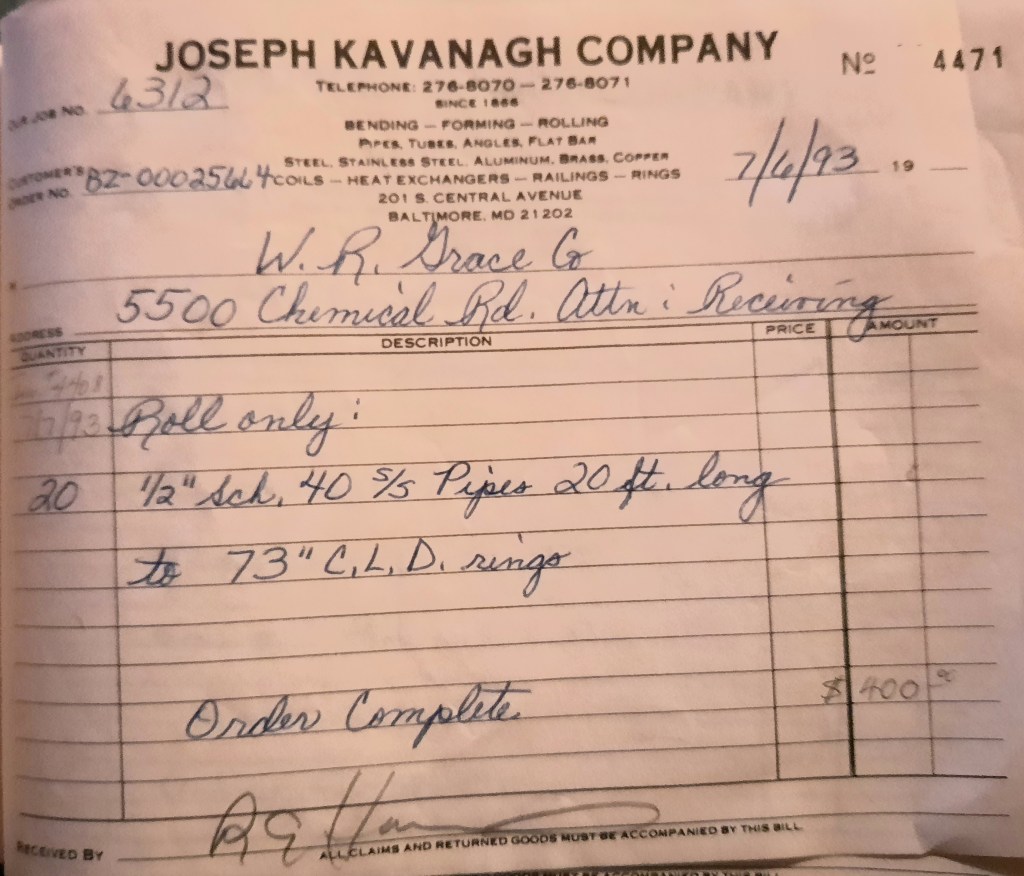 JOSEPH KAVANAGH COMPANY
Nº 4471
TELEPHONE: 276-8070 — 276-8071
SINCE 1866
OUR JOB NO. 6312
BENDING — FORMING — ROLLING
PIPES, TUBES, ANGLES, FLAT BAR
STEEL, STAINLESS STEEL, ALUMINUM, BRASS, COPPER
7/6/93 19
CUSTOMER'S ORDER NO. BZ-00025664
COILS — HEAT EXCHANGERS — RAILINGS — RINGS
201 S. CENTRAL AVENUE
BALTIMORE, MD 21202
W. R. Grace Co
5500 Chemical Rd. Attn: Receiving
ADDRESS
QUANTITY DESCRIPTION PRICE AMOUNT
7/7/93 Roll only:
20 1/2" Sch. 40 S/S Pipes 20 ft. long
to 73" C.L.D. rings
$ 400 00
Order Complete
RECEIVED BY
ALL CLAIMS AND RETURNED GOODS MUST BE ACCOMPANIED BY THIS BILL